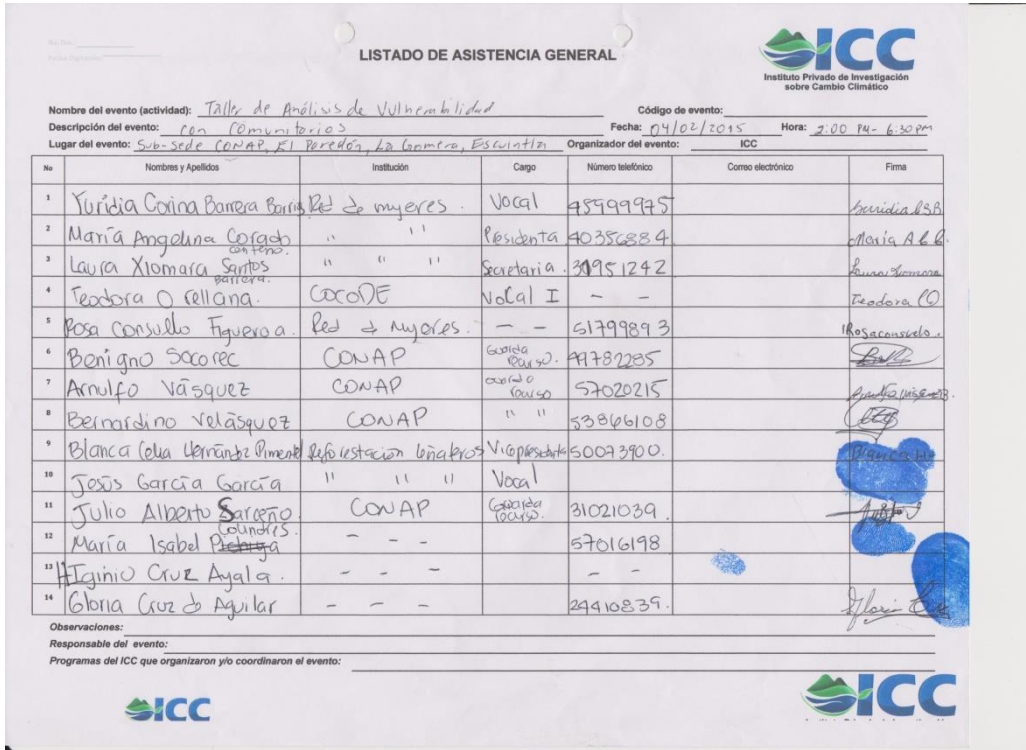 LISTADO DE ASISTENCIA GENERAL
ICC
Instituto Privado de Investigación
sobre Cambio Climático
Nombre del evento (actividad): Taller de Análisis de Vulnerabilidad Código de evento:
Descripción del evento: con Comunitarios Fecha: 04/02/2015 Hora: 2:00 PM- 6:30 PM
Lugar del evento: Sub-sede CONAP, El Paredón, La Gomera, Escuintla Organizador del evento: ICC
No Nombres y Apellidos Institución Cargo Número telefónico Correo electrónico Firma
1 Yuridia Corina Barrera Barrios Red de mujeres. Vocal 45999975
2 María Angelina Corado centeno. " " Presidenta 40356884 María A C C.
3 Laura Xiomara Santos Barrera. " " " Secretaria. 30951242 Laura Xiomara
4 Teodora Orellana. COCODE Vocal I - - Teodora
5 Rosa Consuelo Figueroa. Red de Mujeres. - - 51799893 Rosaconsuelo.
6 Benigno Socorec CONAP Guarda recurso. 49782285
7 Arnulfo Vásquez CONAP Guarda recurso 57020215
8 Bernardino Velásquez CONAP " " 53866108
9 Blanca Celia Hernández Pimentel Reforestacion leñateros Vicepresidenta 50073900. Blanca
10 Jesús García García " " " Vocal
11 Julio Alberto Sarceño. CONAP Guarda recurso. 31021039.
12 María Isabel Colindres. - - - 57016198
13 HIginio Cruz Ayala. - - - - -
14 Gloria Cruz de Aguilar - - - 24410839. Gloria
Observaciones:
Responsable del evento:
Programas del ICC que organizaron y/o coordinaron el evento:
ICC
ICC